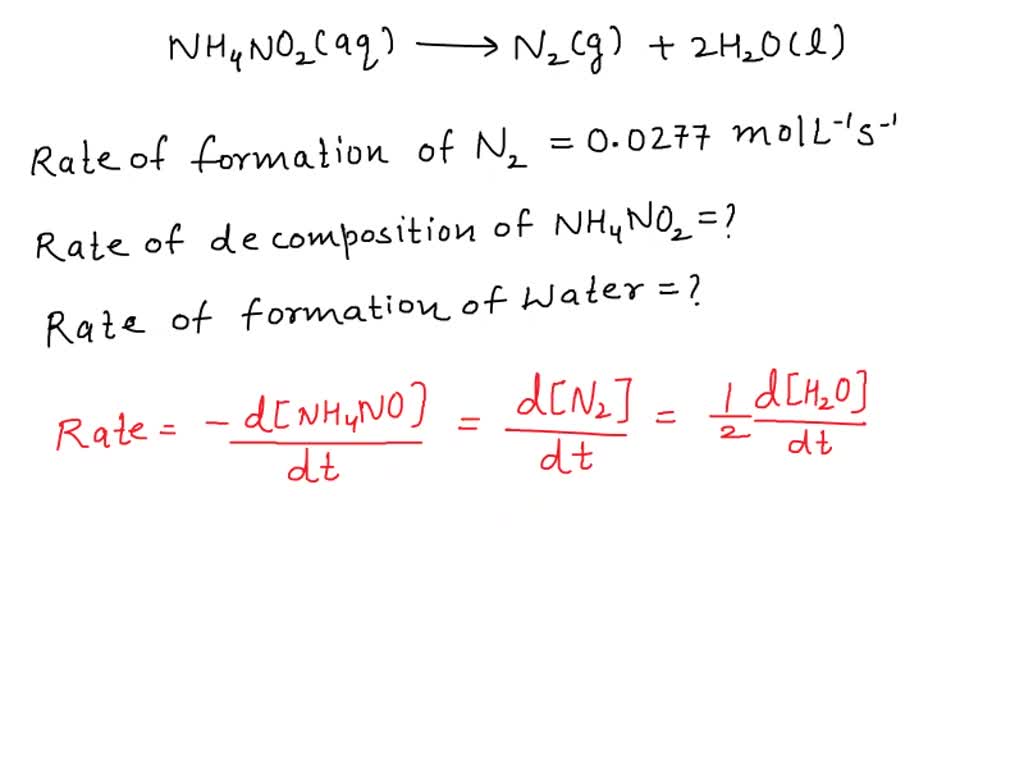 NH₄NO₂(aq) ⟶ N₂(g) + 2H₂O(l)
Rate of formation of N₂ = 0.0277 mol L⁻¹s⁻¹
Rate of decomposition of NH₄NO₂ = ?
Rate of formation of Water = ?
Rate = - d[NH₄NO]/dt = d[N₂]/dt = 1/2 d[H₂O]/dt